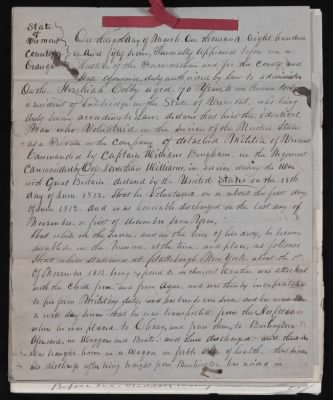 State
of Vermont
County
Orange
On this day of March One thousand Eight hundred
and fifty seven, Personally appeared before me a
Justice of the Peace within and for the County and
State aforesaid, duly authorised by law to administer
Oaths. Colby aged 70 Years, to me known
a resident of Tunbridge in the State of Vermont, who being
duly sworn according to Law, declares that he is the identical
Man who Volunteered in the Service of the United States
as a Private in the Company of detached Militia of Vermont
Commanded by Captain William Bingham, in the Regiment
Commanded by Col. Jonathan Williams, in Service during the War
with Great Britain, declared by the United States on the 18th
day of June 1812. That he Volunteered on or about the first day
of June 1812. And was honorably discharged on the last day of
November or first of December same Year,
That while in the Service and in the line of his duty, he became
disabled, in the Manner, at the time, and place, as follows
That when stationed at Plattsburgh New York about the 1st
of November 1812 being exposed to inclement Weather was attacked
with the Chill fever and fever Ague, and was thereby incapacitated
to perform Military duty, and has been ever since and has never
a well day since that he was transported from the Hospital
when he was placed to Chazy, and from there, to Burlington
Vermont, in Waggons and Boats, and there discharged and then
was brought home in a Wagon in feeble state of health, that since
his discharge after being brought from Burlington has resided in